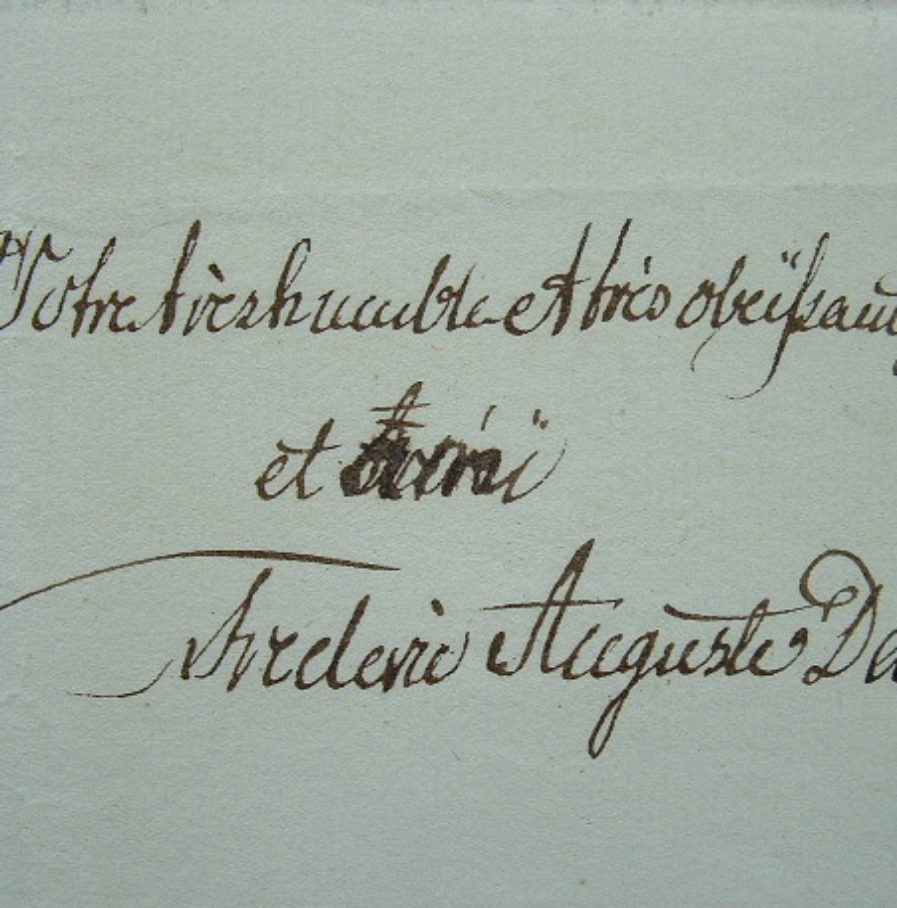 Votre très humble et très obeïssant
et Ami
Frederic Auguste De